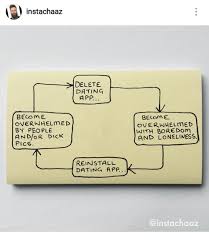 instachaaz
DELETE
DATING
APP...
BECOME
OVERWHELMED
WITH BOREDOM
AND LONELINESS.
REINSTALL
DATING APP...
BECOME
OVERWHELMED
BY PEOPLE
AND/OR DICK
PICS.
@instachaaz